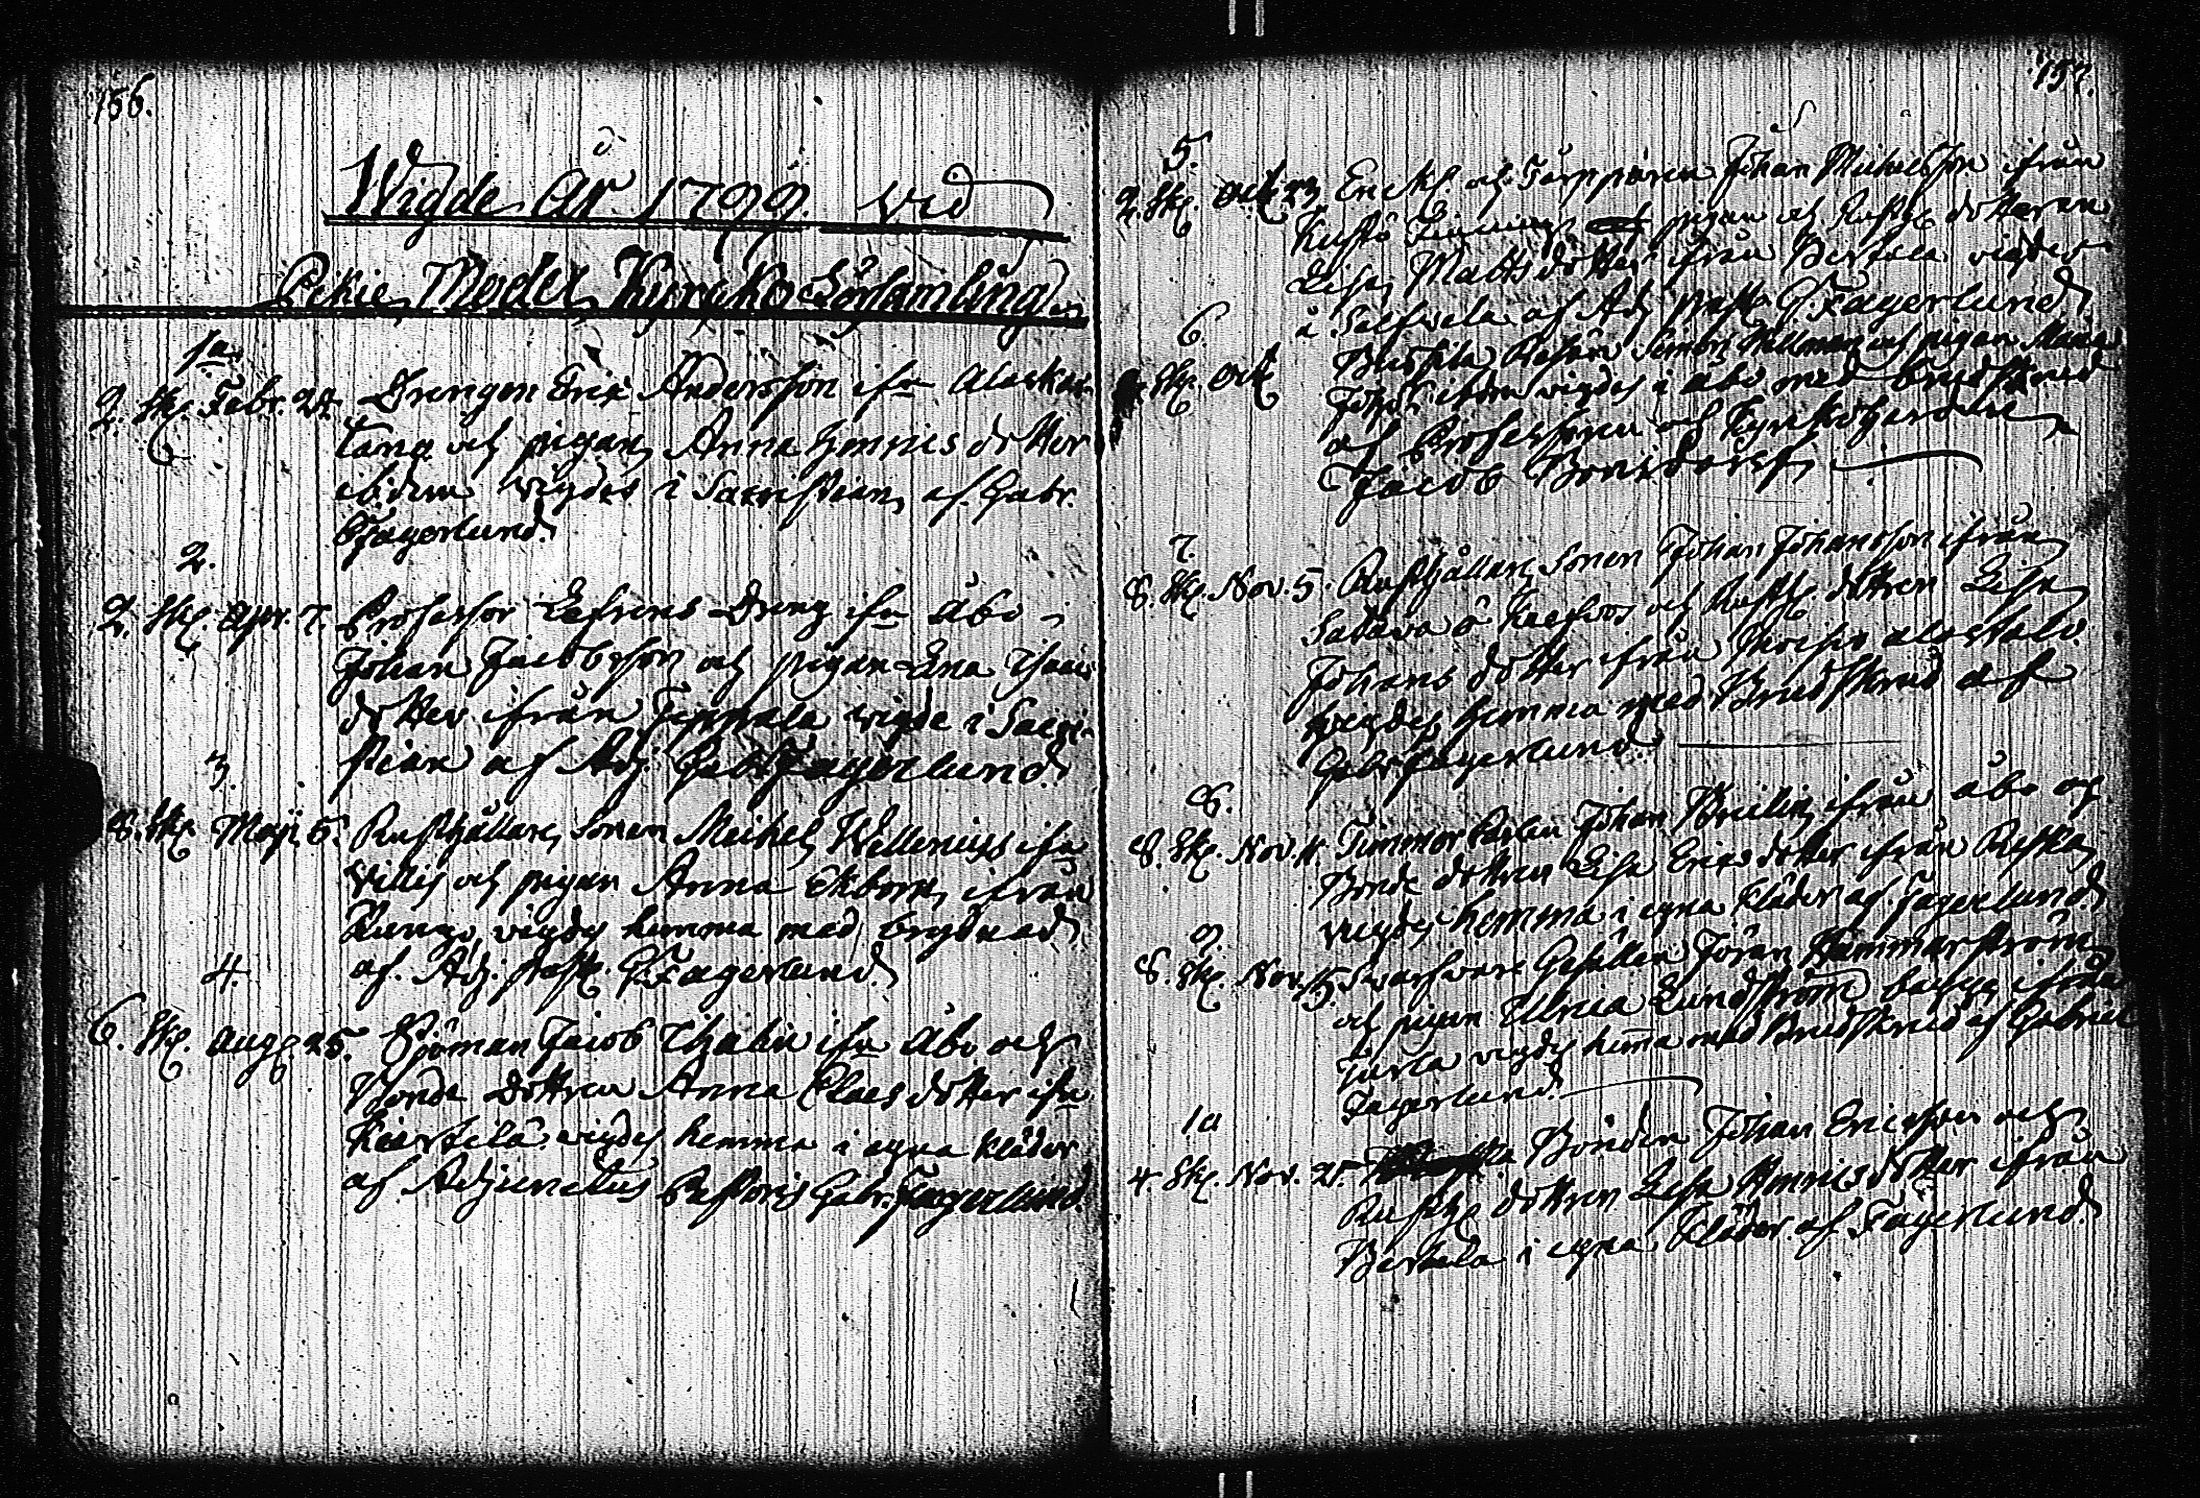 156.
Wigde År 1799. vid
Pikie Moder Kyrcko Församling
1o
2. Sk. Febr. 24. Drengen Eric Andersson ifrn Alaskar
tano och pigan Anna Henrics dotter
ibidem wigdes i Sacristian af Gabr.
Fagerlund.
2.
2. Sk. Apr. 7. Professor Lefrens Dreng ifrn Åbo
Johan Jacobsson och pigan Lena
dotter ifrån wigde i Sacri-
stian af Adj. Gabr Fagerlund.
3.
8. Sk. Maji 5. Rusthållare Sonen Michel Wellenius ifrn
Villis och pigan Anna Ekbom ifrån
Runge, wigdes hemma med brydnad
af Adj. past. G. Fagerlund.
4.
6. Sk. Aug. 25. Sjöman Jacob Thalin ifrn Åbo och
Bonde dottren Anna Claes dotter ifrn
wigdes hemma i egna kläder
af Adjunctus Pastoris Gabr. Fagerlund.
157.
5.
2. Sk. Oct. 23. Enckl. och Torpparen Johan Michelsson ifrån
Kustö pigan och Rusth. dotteren
Lisa Matts dotter ifrån Bertula wigdes
i af Adj. past. G. Fagerlund.
6.
Sk. Oct. Simon och pigan Maria
ibm wigdes i Åbo med Brudskrud
af Professoren och Kyrkoherden
Jacob Bonsdorff.
7.
8. Sk. Nov. 5. Rusthållare Sonen Johan Johansson ifrån
Satava ö och Rusth. dottren Lisa
Johans dotter ifrån Moisio alastalo
wigdes hemma med Brudskrud af
Gabr Fagerlund.
8.
8. Sk. Nov. Timmer Karlen Johan Breilin ifrån Åbo och
Bonde dottren Lisa Erics dotter ifrån Raska
wigdes hemma i egna kläder af Fagerlund
9.
8. Sk. Nov. 15. Swarfware Gesällen Jöran Hammarström
och pigan Ulrica Lundström begge ifrån
wigdes hemma med Brudskrud af Gabriel
Fagerlund.
10
4. Sk. Nov. 25. Bonden Johan Ericsson och
Rusth. dottren Lisa Henricsdotter ifrån
Bertula i egna kläder af Fagerlund.